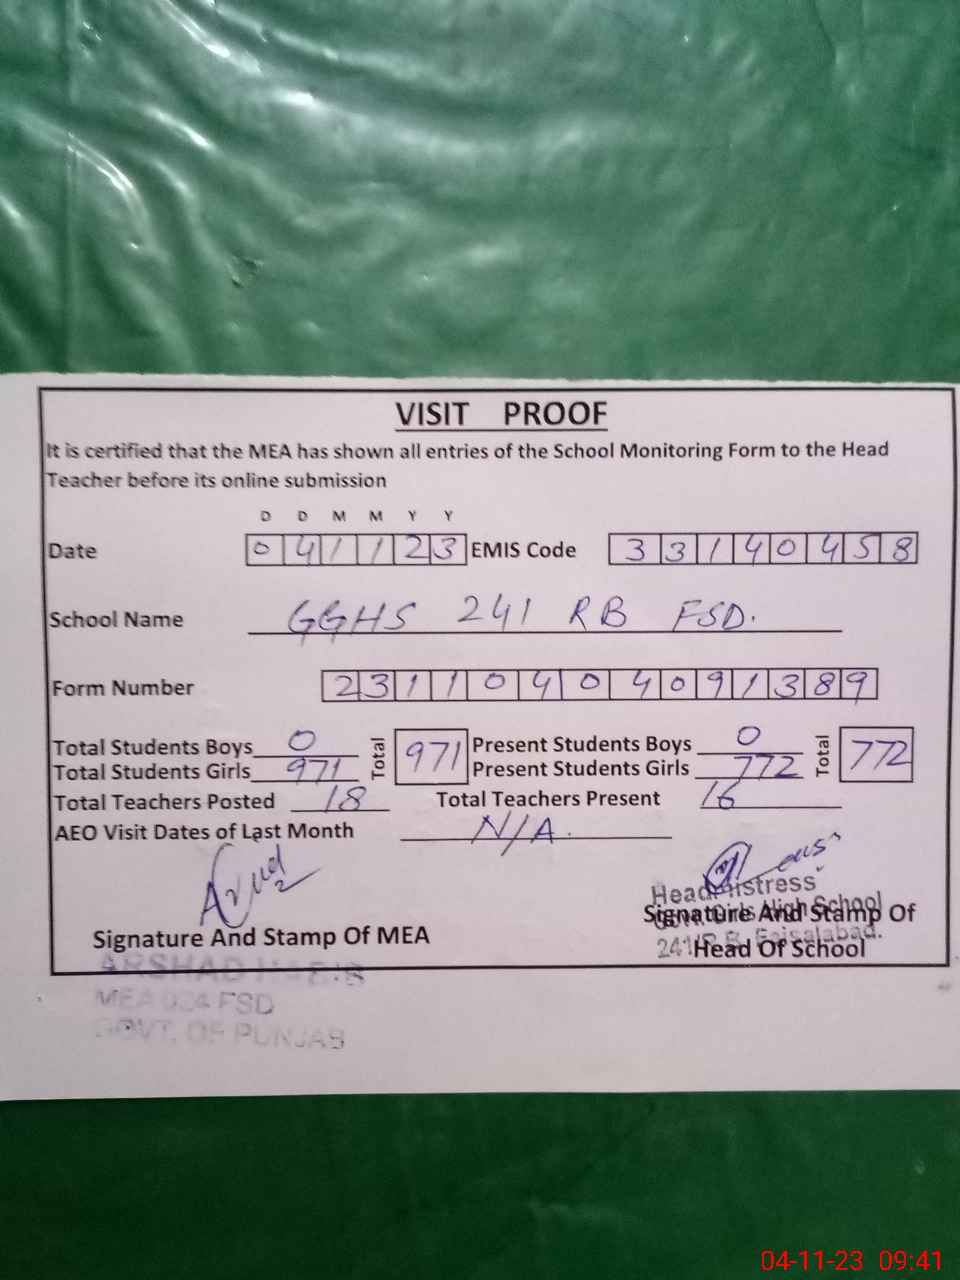 VISIT PROOF
It is certified that the MEA has shown all entries of the School Monitoring Form to the Head
Teacher before its online submission
D D M M Y Y
Date 0 4 1 1 2 3 EMIS Code 3 3 1 4 0 4 5 8
School Name GGHS 241 RB FSD.
Form Number 2 3 1 1 0 4 0 4 0 9 1 3 8 9
Total Students Boys 0 Total 971 Present Students Boys 0 Total 772
Total Students Girls 971 Present Students Girls 772
Total Teachers Posted 18 Total Teachers Present 16
AEO Visit Dates of Last Month N/A.
Headmistress
Govt. Girls High School
241/R.B. Faisalabad.
Signature And Stamp Of MEA
Signature And Stamp Of
Head Of School
ARSHAD HABIB
MEA 024 FSD
GOVT. OF PUNJAB
04-11-23 09:41